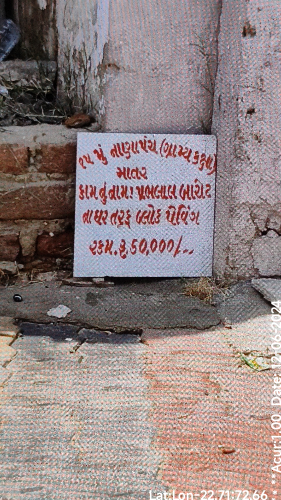 ૧૫ મું નાણાપંચ (ગ્રામ્ય કક્ષા)
માતર
કામનું નામ: પ્રભલાલ બારોટ
ના ઘર તરફ બ્લોક પેવિંગ
રકમ.રૂ.50,000/-..
Lat:Lon-22.71:72.66
**Acur:1.00 Date:
2024